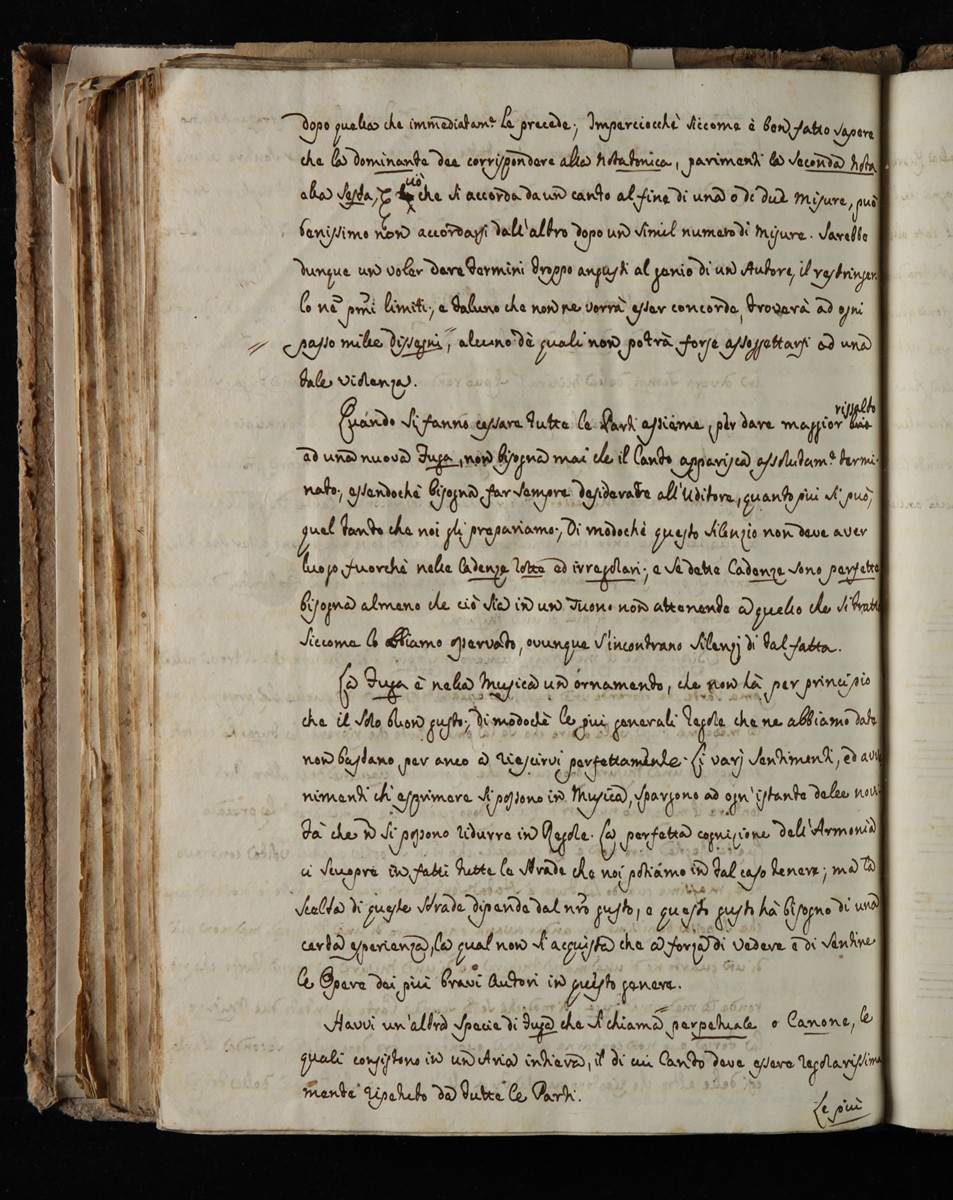 dopo quella che immediatam.e le precede; Imperciocchè siccome è ben fatto sapere
che la dominante dee corrispondere alla Nota tonica, parimenti la seconda Nota
alla Sesta, che si accorda da un canto al fine di una o di due Misure, può
benissimo non accordarsi dall'altro dopo un simil numero di Misure. Sarebbe
dunque un voler dare termini troppo angusti al genio di un Autore, il restringer
lo nè pmi limiti; e taluno che non ne vorrà esser concorde, troverà ad ogni
passo mille dissegni, alcuno dè quali non potrà forse assoggettarsi ad una
tale violenza.
Quando si fanno cessare tutte le Parti assieme, per dare maggior rissalto
ad una nuova Fuga, non bisogna mai che il Canto apparisca assolutam.e termi-
nato; essendochè bisogna far sempre desiderare all'Uditore, quanto più si può,
quel tanto che noi gli prepariamo; Di modochè questo silenzio non deve aver
luogo fuorchè nelle Cadenze rotte ed irregolari; e se dette Cadenze sono perfette
bisogna almeno che ciò sia in un Tuono non attenente a quello che si tratta
siccome lo abbiamo osservato, ovunque s'incontrano silenzj di tal fatta.
La Fuga è nella Musica un ornamento, che non hà per principio
che il solo buon gusto; di modochè le più generali Regole che ne abbiamo date
non bastano per anco a riescirvi perfettamente. Li varj sentimenti, ed avve
nimenti ch'esprimere si possono in Musica, spargono ad ogn'istante delle novi
tà che n si possono ridurre in Regole. La perfetta cognizione dell'Armonia
ci scuopre in fatti tutte le strade che noi potiamo in tal caso tenere; ma la
scelta di queste strade dipende dal nro gusto, e questo gusto hà bisogno di una
certa esperienza, la qual non s'acquista che a forza di vedere e di sentire
le Opere dei più bravi Autori in questo genere.
Havvi un'altra specie di Fuga che si chiama perpetuale o Canone, le
quali consistono in un'Aria intiera, il di cui Canto deve essere regolarissima
mente ripetuto da tutte le Parti.
Le più